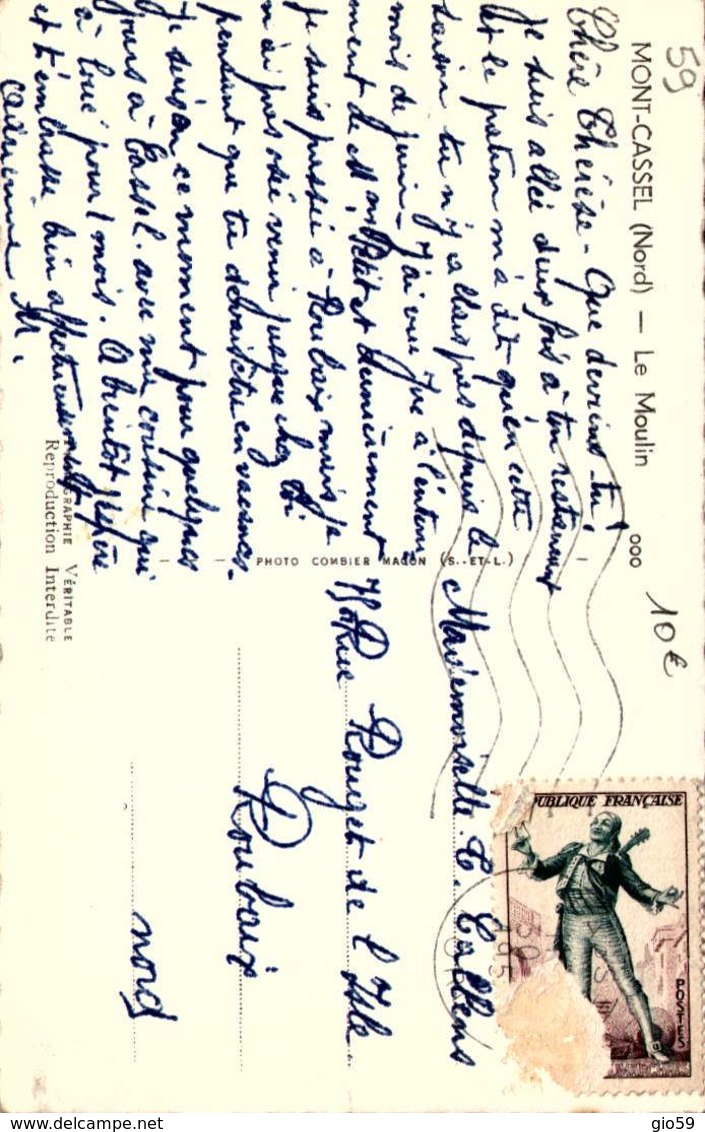 59
MONT-CASSEL (Nord) — Le Moulin
000
10€
Chère Thérèse - Que deviens-tu !
Je suis allée deux fois à ton restaurant
et le patron m'a dit qu'en cette
saison tu n'y allais pas depuis le
mois de juin - J'ai vu que à l'enterre
ment de Mme Petit et dernièrement
je suis passée à Roubaix mais je
n'ai pas osé venir jusque chez toi
pendant que tu devais être en vacances.
Je suis en ce moment pour quelques
jours à Cassel. avec ma cousine qui
a loué pour 1 mois. A bientôt j'espère
et t'embrasse bien affectueusement
PHOTO COMBIER MACON (S.-ET-L.)
PHOTOGRAPHIE VÉRITABLE
Reproduction Interdite
Mademoiselle. T. Callens
Rue Rouget de l'Isle
Roubaix
Nord
RÉPUBLIQUE FRANÇAISE
POSTES
delcampe.net
gio59